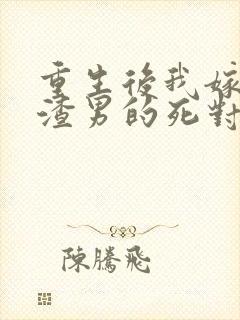 重生後我嫁
渣男的死對
陳騰飛